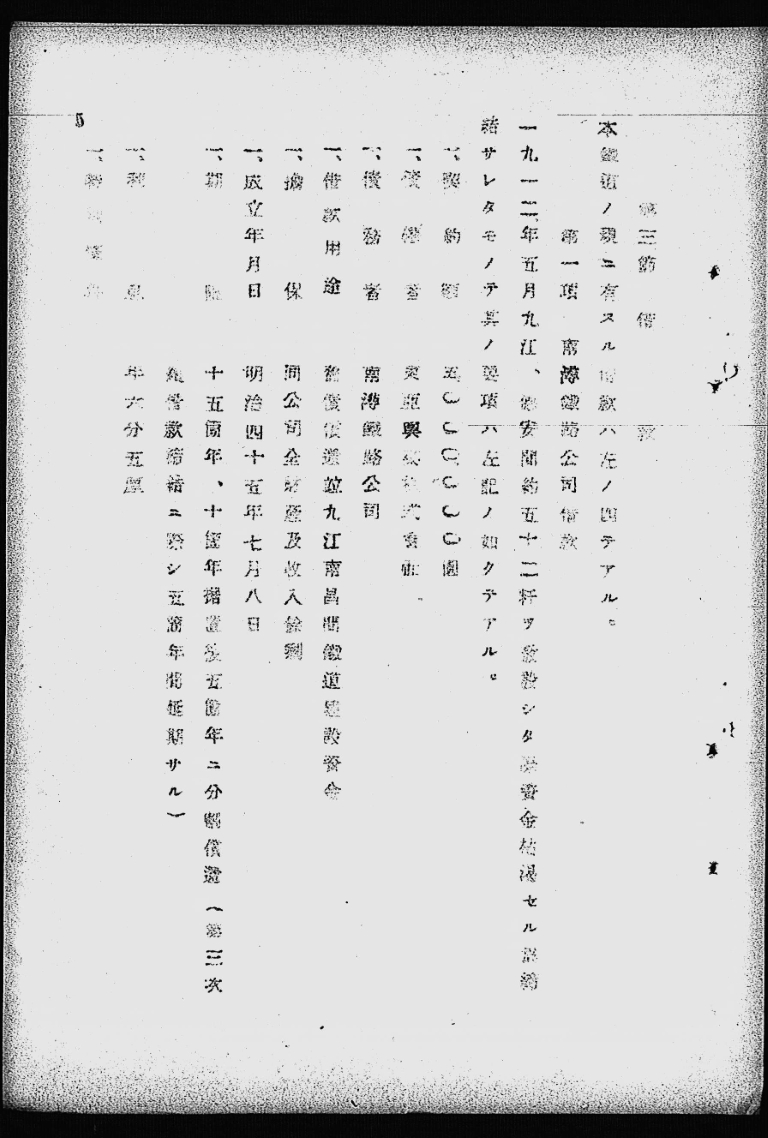 第三節 借款
本鐵道ノ現ニ有スル借款ハ左ノ四テアル。
第一項 南潯鐵路公司借款
一九一二年五月九江、德安間約五十二粁ヲ敷設シタ 資金枯渇セル為締
結サレタモノテ其ノ要項ハ左記ノ如クテアル。
一、契約額 五〇〇〇〇〇〇圓
一、債權者 東亞興業株式會社
一、債務者 南潯鐵路公司
一、借款用途 舊債償還竝九江南昌間鐵道建設資金
一、擔保 同公司全財産及收入餘剩
一、成立年月日 明治四十五年七月八日
一、期限 十五箇年、十箇年据置後五箇年ニ分割償還(第三次
銀借款締結ニ際シ五箇年間延期サル)
一、利息 年六分五厘
一、
5